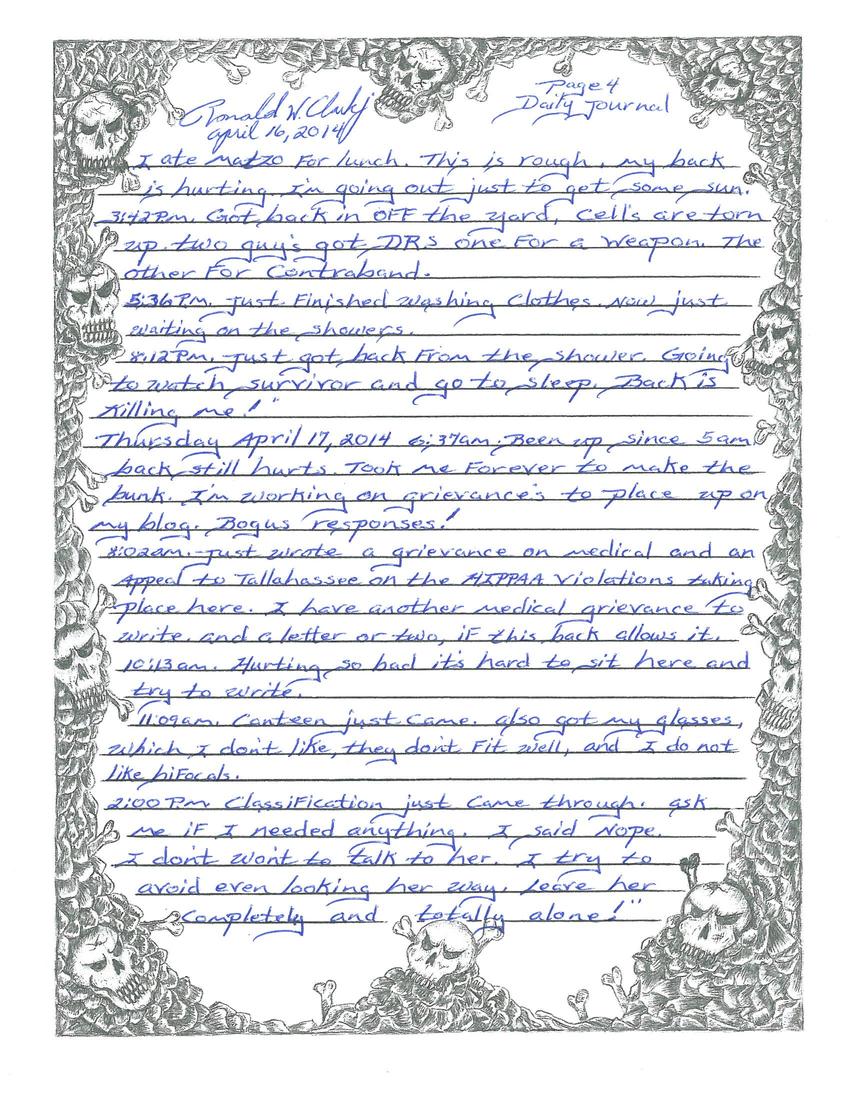 Ronald W. Clark Jr
Page 4
Daily Journal
April 16, 2014
I ate matzo For lunch. This is rough. my back
is hurting. I'm going out just to get some sun.
3:42 P.m. Got back in OFF the yard, Cell's are torn
up. two guy's got DRs one For a weapon. The
other For Contraband.
5:36 P.m. just Finished washing Clothes. now just
waiting on the showers.
8:12 P.m. just got back From the shower. Going
to watch survivor and go to sleep. Back is
Killing me!"
Thursday April 17, 2014 6:37am. Been up since 5am
back still hurts. Took me Forever to make the
bunk. I'm working on grievance's to place up on
my blog. Bogus responses!
8:02am. just wrote a grievance on medical and an
Appeal to Tallahassee on the HIPPAA violations taking
place here. I have another medical grievance to
write. and a letter or two, iF this back allows it.
10:13am. Hurting so bad it's hard to sit here and
try to write.
11:09am. Canteen just Came. also got my glasses,
which I don't like, they don't Fit well, and I do not
like biFocals.
2:00 P.m. ClassiFication just Came through. ask
me iF I needed anything. I said Nope.
I don't wont to talk to her. I try to
avoid even looking her way. Leave her
Completely and totally alone!"